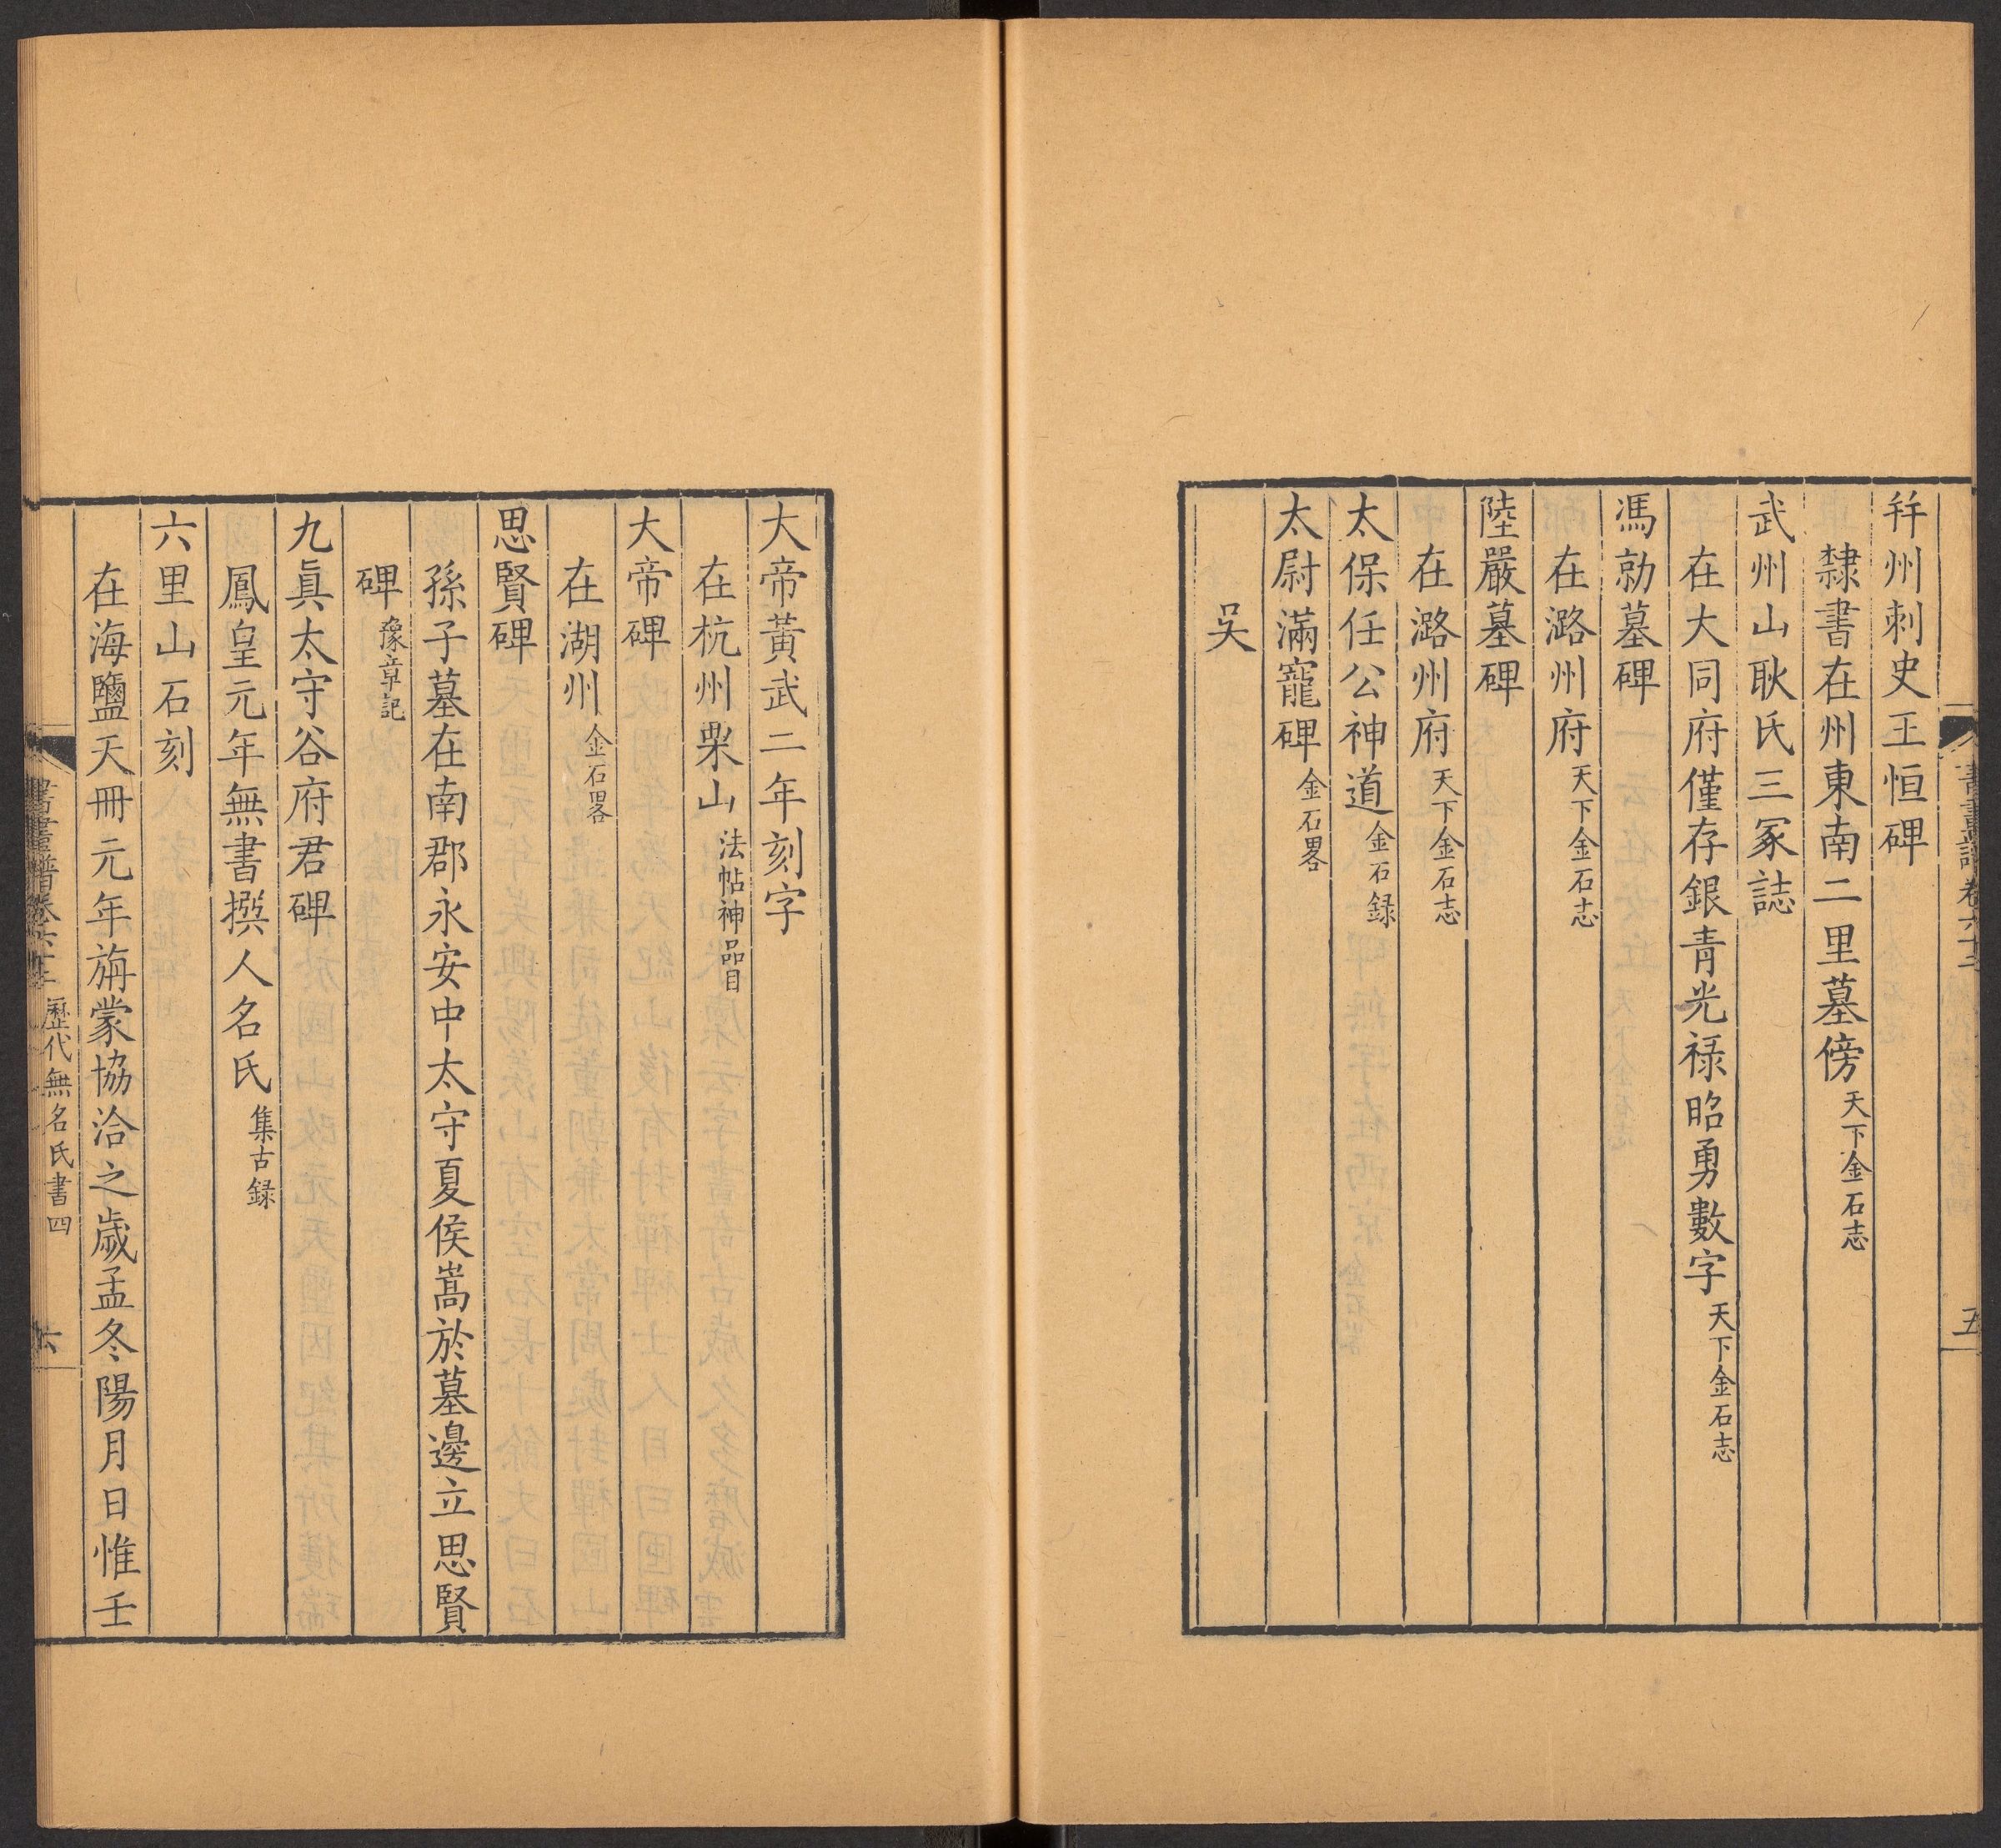 幷州刺史王恒碑
隸書在州東南二里墓傍天下金石志
武州山耿氏三冢誌
在大同府僅存銀青光禄昭勇數字天下金石志
馮勍墓碑
在潞州府天下金石志
陸嚴墓碑
在潞州府天下金石志
太保任公神道金石録
太尉滿寵碑金石畧
吳
五
大帝黃武二年刻字
在杭州栗山法帖神品目
大帝碑
在湖州金石畧
思賢碑
孫子墓在南郡永安中太守夏侯嵩於墓邊立思賢
碑豫章記
九眞太守谷府君碑
鳳皇元年無書撰人名氏集古録
六里山石刻
在海鹽天冊元年旃蒙協洽之歲孟冬陽月日惟壬
歷代無名氏書四
六